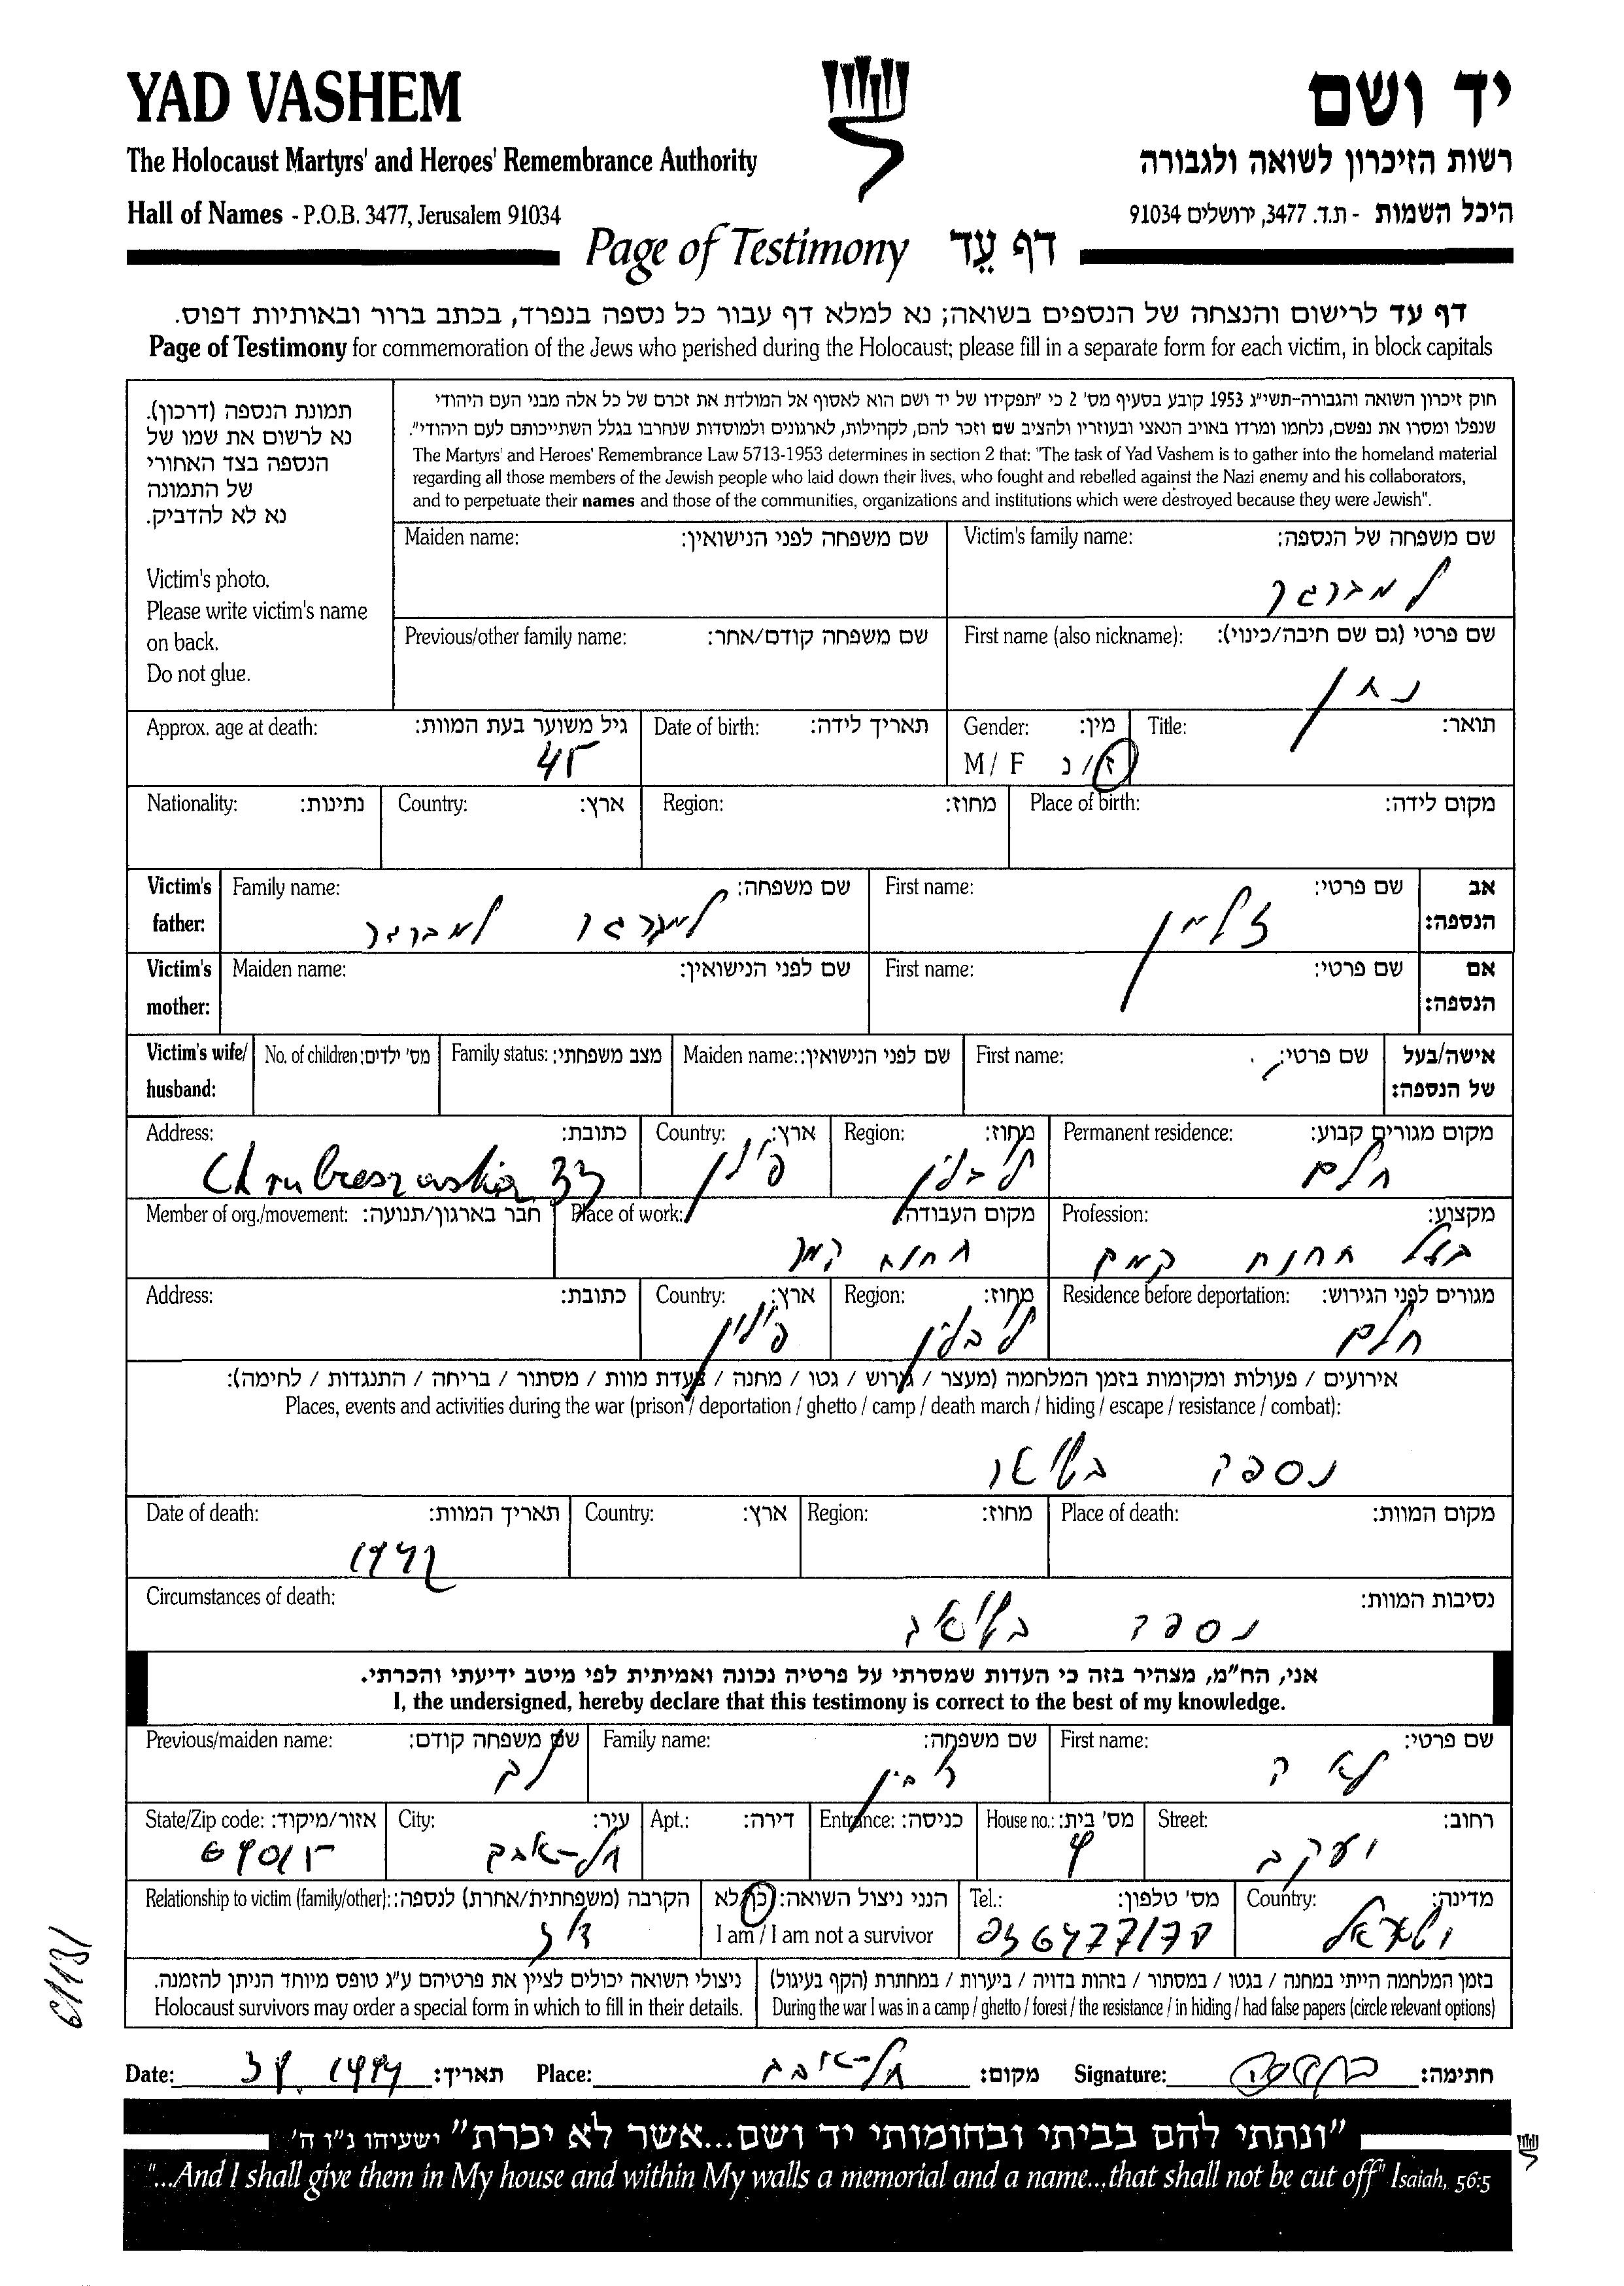 YAD VASHEM
יד ושם
The Holocaust Martyrs' and Heroes' Remembrance Authority
רשות הזיכרון לשואה ולגבורה
Hall of Names - P.O.B. 3477, Jerusalem 91034
היכל השמות - ת.ד. 3477, ירושלים 91034
Page of Testimony דף עֵד
דף עד לרישום והנצחה של הנספים בשואה; נא למלא דף עבור כל נספה בנפרד, בכתב ברור ובאותיות דפוס.
Page of Testimony for commemoration of the Jews who perished during the Holocaust; please fill in a separate form for each victim, in block capitals
תמונת הנספה (דרכון).
נא לרשום את שמו של
הנספה בצד האחורי
של התמונה
נא לא להדביק.
Victim's photo.
Please write victim's name
on back.
Do not glue.
חוק זיכרון השואה והגבורה-תשי"ג 1953 קובע בסעיף מס' 2 כי "תפקידו של יד ושם הוא לאסוף אל המולדת את זכרם של כל אלה מבני העם היהודי
שנפלו ומסרו את נפשם, נלחמו ומרדו באויב הנאצי ובעוזריו ולהציב שם וזכר להם, לקהילות, לארגונים ולמוסדות שנחרבו בגלל השתייכותם לעם היהודי".
The Martyrs' and Heroes' Remembrance Law 5713-1953 determines in section 2 that: "The task of Yad Vashem is to gather into the homeland material
regarding all those members of the Jewish people who laid down their lives, who fought and rebelled against the Nazi enemy and his collaborators,
and to perpetuate their names and those of the communities, organizations and institutions which were destroyed because they were Jewish".
Victim's family name: שם משפחה של הנספה:
למברגר
Maiden name: שם משפחה לפני הנישואין:
First name (also nickname): שם פרטי (גם שם חיבה/כינוי):
נתן
Previous/other family name: שם משפחה קודם/אחר:
Title: תואר:
Gender: מין:
M / F ז / נ
Date of birth: תאריך לידה:
Approx. age at death: גיל משוער בעת המוות:
45
Place of birth: מקום לידה:
Region: מחוז:
Country: ארץ:
Nationality: נתינות:
Victim's father: אב הנספה:
First name: שם פרטי:
זלמן
Family name: שם משפחה:
למברגר
Victim's mother: אם הנספה:
First name: שם פרטי:
Maiden name: שם לפני הנישואין:
Victim's wife/husband: אישה/בעל של הנספה:
First name: שם פרטי:
Maiden name: שם לפני הנישואין:
Family status: מצב משפחתי:
No. of children: מס' ילדים:
Permanent residence: מקום מגורים קבוע:
חלם
Region: מחוז:
לובלין
Country: ארץ:
פולין
Address: כתובת:
33
Profession: מקצוע:
בעל תחנת קמח
Place of work: מקום העבודה:
תחנת קמח
Member of org./movement: חבר בארגון/תנועה:
Residence before deportation: מגורים לפני הגירוש:
חלם
Region: מחוז:
לובלין
Country: ארץ:
פולין
Address: כתובת:
אירועים / פעולות ומקומות בזמן המלחמה (מעצר / גרוש / גטו / מחנה / צעדת מוות / מסתור / בריחה / התנגדות / לחימה):
Places, events and activities during the war (prison / deportation / ghetto / camp / death march / hiding / escape / resistance / combat):
נספה בשואה
Place of death: מקום המוות:
Region: מחוז:
Country: ארץ:
Date of death: תאריך המוות:
1942
Circumstances of death: נסיבות המוות:
נספה בשואה
אני, הח"מ, מצהיר בזה כי העדות שמסרתי על פרטיה נכונה ואמיתית לפי מיטב ידיעתי והכרתי.
I, the undersigned, hereby declare that this testimony is correct to the best of my knowledge.
First name: שם פרטי:
לאה
Family name: שם משפחה:
רבין
Previous/maiden name: שם משפחה קודם:
Street: רחוב:
יעקב
House no.: מס' בית:
Entrance: כניסה:
Apt.: דירה:
City: עיר:
תל-אביב
State/Zip code: אזור/מיקוד:
Country: מדינה:
ישראל
Tel.: מס' טלפון:
הנני ניצול השואה: כן/לא
I am / I am not a survivor
Relationship to victim (family/other): הקרבה (משפחתית/אחרת) לנספה:
דוד
בזמן המלחמה הייתי במחנה / בגטו / במסתור / בזהות בדויה / ביערות / במחתרת (הקף בעיגול)
During the war I was in a camp / ghetto / forest / the resistance / in hiding / had false papers (circle relevant options)
ניצולי השואה יכולים לציין את פרטיהם ע"ג טופס מיוחד הניתן להזמנה.
Holocaust survivors may order a special form in which to fill in their details.
Date: 1999 תאריך: Place: תל-אביב מקום: Signature: חתימה:
"ונתתי להם בביתי ובחומותי יד ושם...אשר לא יכרת" ישעיהו נ"ו ה'
"...And I shall give them in My house and within My walls a memorial and a name...that shall not be cut off" Isaiah, 56:5